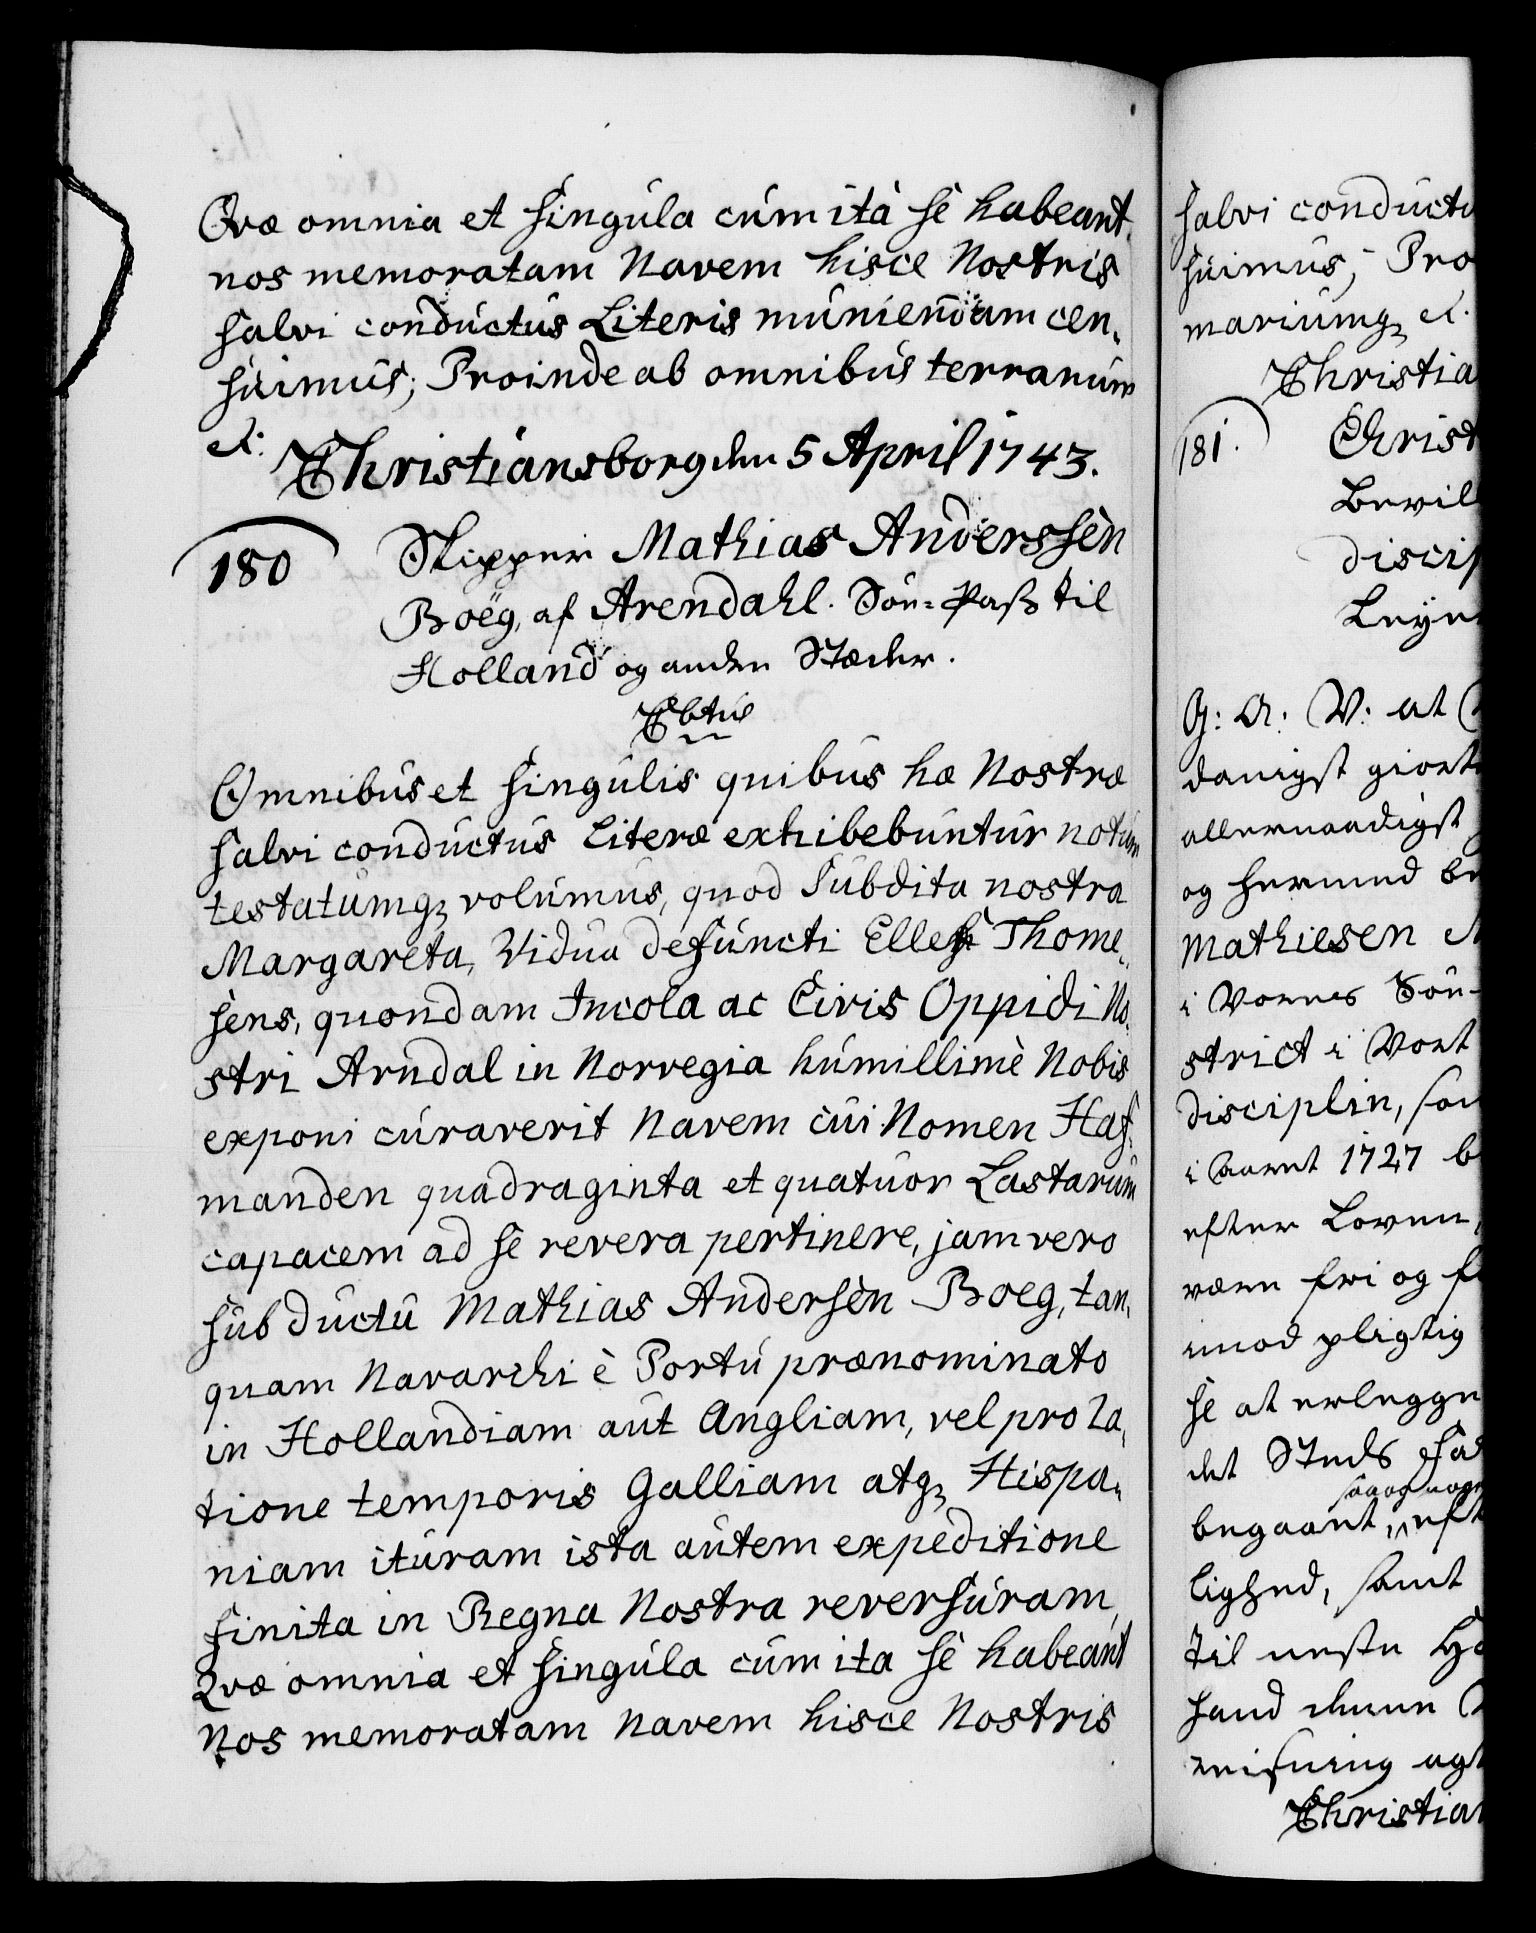 Qvæ omnia et singula cum ita se habeant,
nos memoratam Navem hisce Nostris
salvi conductus Literis muniendam cen-
suimus; Proinde ab omnibus terrarum
et:
Christiansborg den 5 April 1743.
180
Skipper Mathias Anderssen
Boëg, af Arendahl. Söe-Pass til
Holland og anden Stæder.
Cbtus
Omnibus et singulis quibus hæ Nostræ
salvi conductus Literæ exhibebuntur notum
testatumq; volumus, quod Subdita nostra
Margareta, Vidua defuncti Elleff Thome-
sens, quondam Incola ac Civis Oppidi No-
stri Arndal in Norvegia humillimè Nobis
exponi curaverit Navem cui Nomen Haf-
manden quadraginta et quatuor Lastarum
capacem ad se revera pertinere, jam vero
sub ductu Mathias Andersen Boeg, tan-
quam Navarchi è Portu prænominato
in Hollandiam aut Angliam, vel pro ra-
tione temporis Galliam atq; Hispa-
niam ituram ista autem expeditione
finita in Regna Nostra reversuram,
Qvæ omnia et singula cum ita se habeant
Nos memoratam Navem hisce Nostris
salvi conductu
suimus; Pro
mariumq; et.
Christia
181.
Christ
Bevil
discip
Leye
G: A: V: at
danigst giort
allernaadigst
og hermed be
Mathiesen
i Vores Söe-
strict i Vort
disciplin, som
i Aaret 1727 b
efter Loven,
være fri og f
imod pligtig
se at erlegge
det Steds
begaaet, eft
lighed, samt
til neste
hand denne
viisning agt
Christian